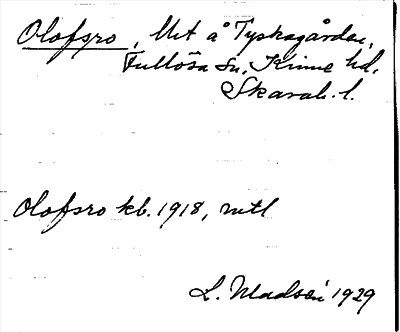 Olofsro, Utt å Tyskagården,
Fullösa sn, Kinne hd,
Skarab. l.
Olofsro kb. 1918, mtl
L. Madsén 1929